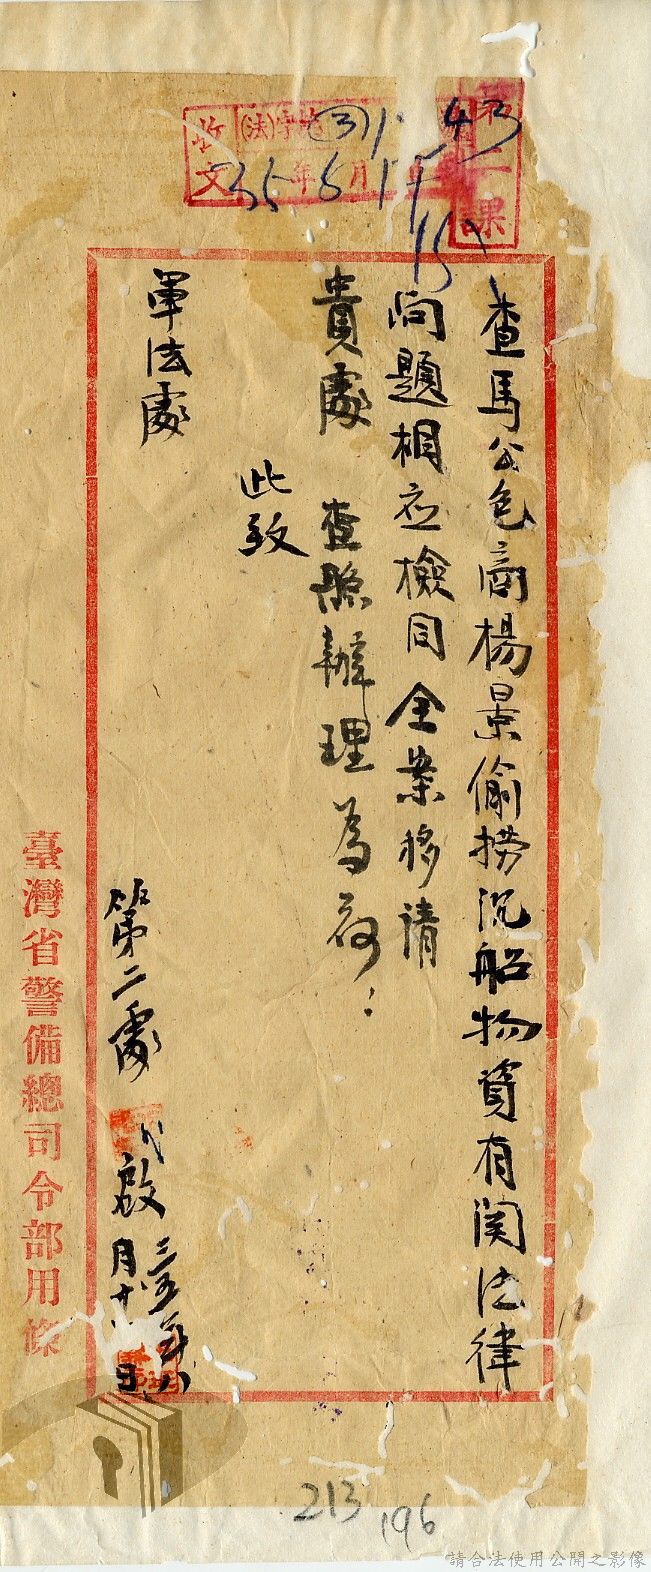 收文
(法)字
35年8月19
第一課
43
查馬公包商楊景偷撈沉船物資有関法律
問題相应檢同全案移請
貴處 查照辦理為荷：
此致
軍法處
第二處 啟
三五年八
月廿 日
臺灣省警備總司令部用條
213
196
請合法使用公開之影像